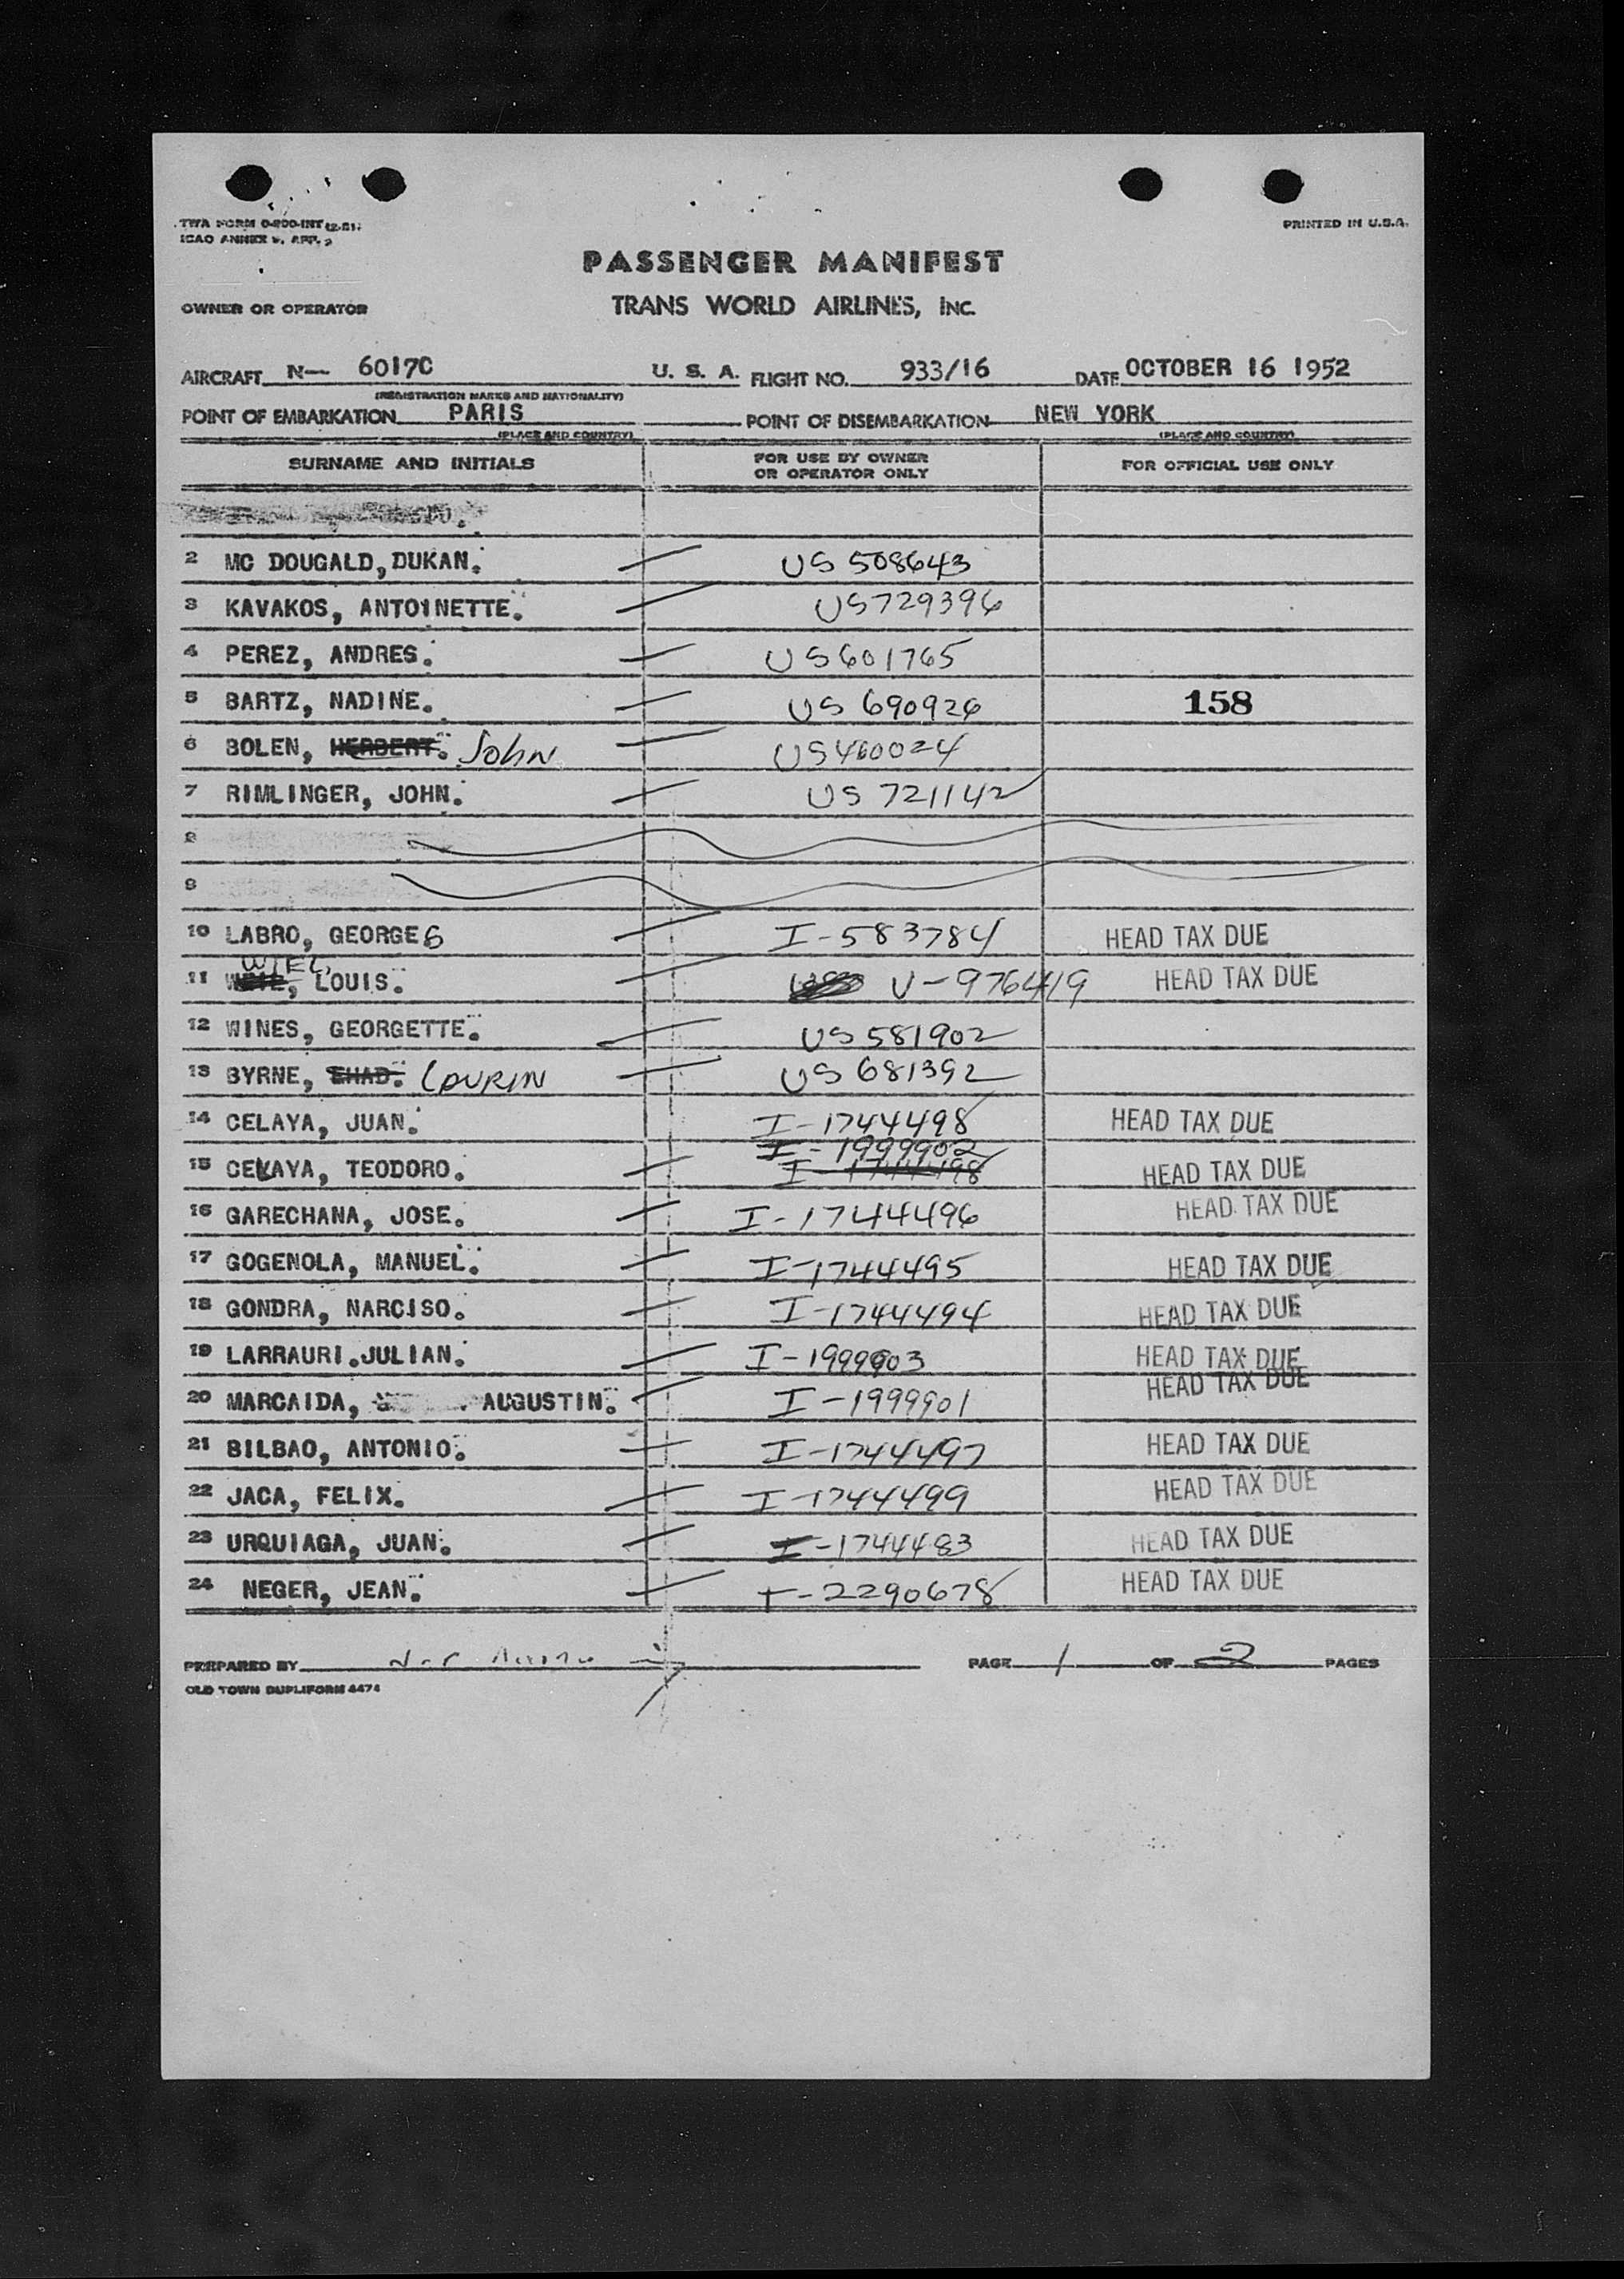 TWA FORM 0-800-INT (2-51)
ICAO ANNEX 9, APP. 2
PRINTED IN U.S.A.
PASSENGER MANIFEST
OWNER OR OPERATOR TRANS WORLD AIRLINES, INC.
AIRCRAFT N— 6017C U. S. A. FLIGHT NO. 933/16 DATE OCTOBER 16 1952
(REGISTRATION MARKS AND NATIONALITY)
POINT OF EMBARKATION PARIS POINT OF DISEMBARKATION NEW YORK
(PLACE AND COUNTRY) (PLACE AND COUNTRY)
SURNAME AND INITIALS FOR USE BY OWNER OR OPERATOR ONLY FOR OFFICIAL USE ONLY
2 MC DOUGALD, DUKAN. US 508643
3 KAVAKOS, ANTOINETTE. US729396
4 PEREZ, ANDRES. US601765
5 BARTZ, NADINE. US 690926 158
6 BOLEN, HERBERT. John US460024
7 RIMLINGER, JOHN. US 721142
8
9
10 LABRO, GEORGES I-583784 HEAD TAX DUE
11 WIEL, LOUIS. V-976419 HEAD TAX DUE
12 WINES, GEORGETTE. US 581902
13 BYRNE, EHAD. LAURIN US 681392
14 CELAYA, JUAN. I-1744498 HEAD TAX DUE
I-1999902
15 CELAYA, TEODORO. I-1744498 HEAD TAX DUE
16 GARECHANA, JOSE. I-1744496 HEAD TAX DUE
17 GOGENOLA, MANUEL. I-1744495 HEAD TAX DUE
18 GONDRA, NARCISO. I-1744494 HEAD TAX DUE
19 LARRAURI.JULIAN. I-1999903 HEAD TAX DUE
20 MARCAIDA, AUGUSTIN. I-1999901 HEAD TAX DUE
21 BILBAO, ANTONIO. I-1744497 HEAD TAX DUE
22 JACA, FELIX. I-1744499 HEAD TAX DUE
23 URQUIAGA, JUAN. I-1744483 HEAD TAX DUE
24 NEGER, JEAN. I-2290678 HEAD TAX DUE
PREPARED BY PAGE 1 OF 2 PAGES
OLD TOWN DUPLIFORM 4474